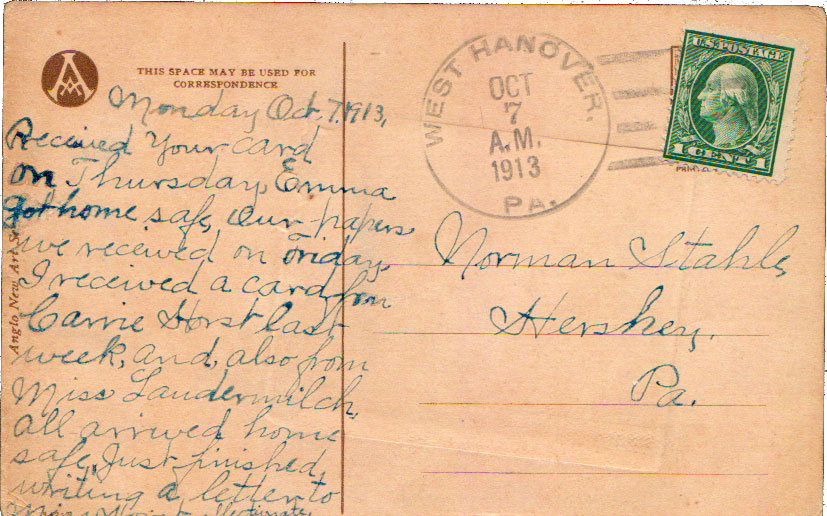 THIS SPACE MAY BE USED FOR
CORRESPONDENCE
Monday Oct. 7, 1913,
Received Your card
on Thursday, Emma
got home safe, Our papers
we received on Friday,
I received a card from
Carrie Horst last
week, and, also from
Miss Laudermilch,
all arrived home
safe, Just finished,
writing a letter to
Miss
Anglo New Art
WEST HANOVER,
OCT
7
A.M.
1913
PA.
U.S. POSTAGE
1 CENT 1
Norman Stahle,
Hershey,
Pa.